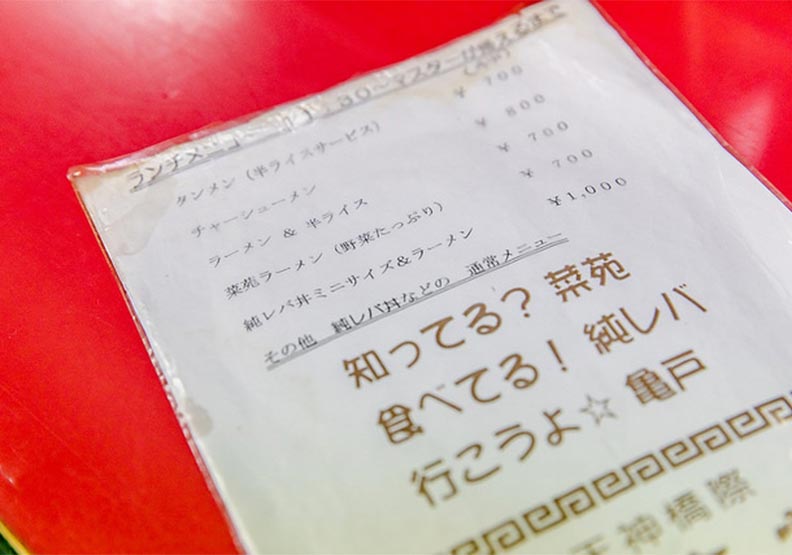 ランチメニュー 11:30～マスターが燃えるまで
タンメン（半ライスサービス） ￥ 700
チャーシューメン ￥ 800
ラーメン & 半ライス ￥ 700
菜苑ラーメン（野菜たっぷり） ￥ 700
純レバ丼ミニサイズ＆ラーメン ￥1,000
その他 純レバ丼などの 通常メニュー
知ってる？ 菜苑
食べてる！ 純レバ
行こうよ☆ 亀戸
天神橋際